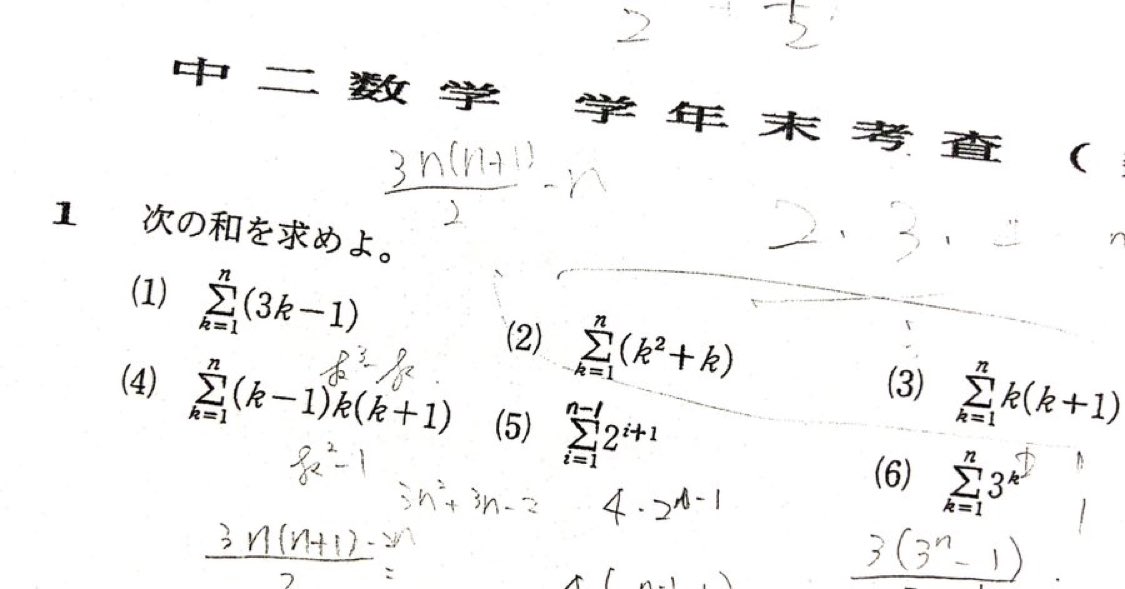 中二数学 学年末考査 (
3n(n+1)/2 - n
2. 3.
1 次の和を求めよ。
(1) \sum_{k=1}^{n}(3k-1)
(2) \sum_{k=1}^{n}(k^2+k)
(3) \sum_{k=1}^{n}k(k+1)
k^3-k
(4) \sum_{k=1}^{n}(k-1)k(k+1)
(5) \sum_{i=1}^{n-1}2^{i+1}
(6) \sum_{k=1}^{n}3^k
k^2-1
3n^2+3n-2
4・2^{n-1}
3n(n+1)-2n
3(3^n-1)